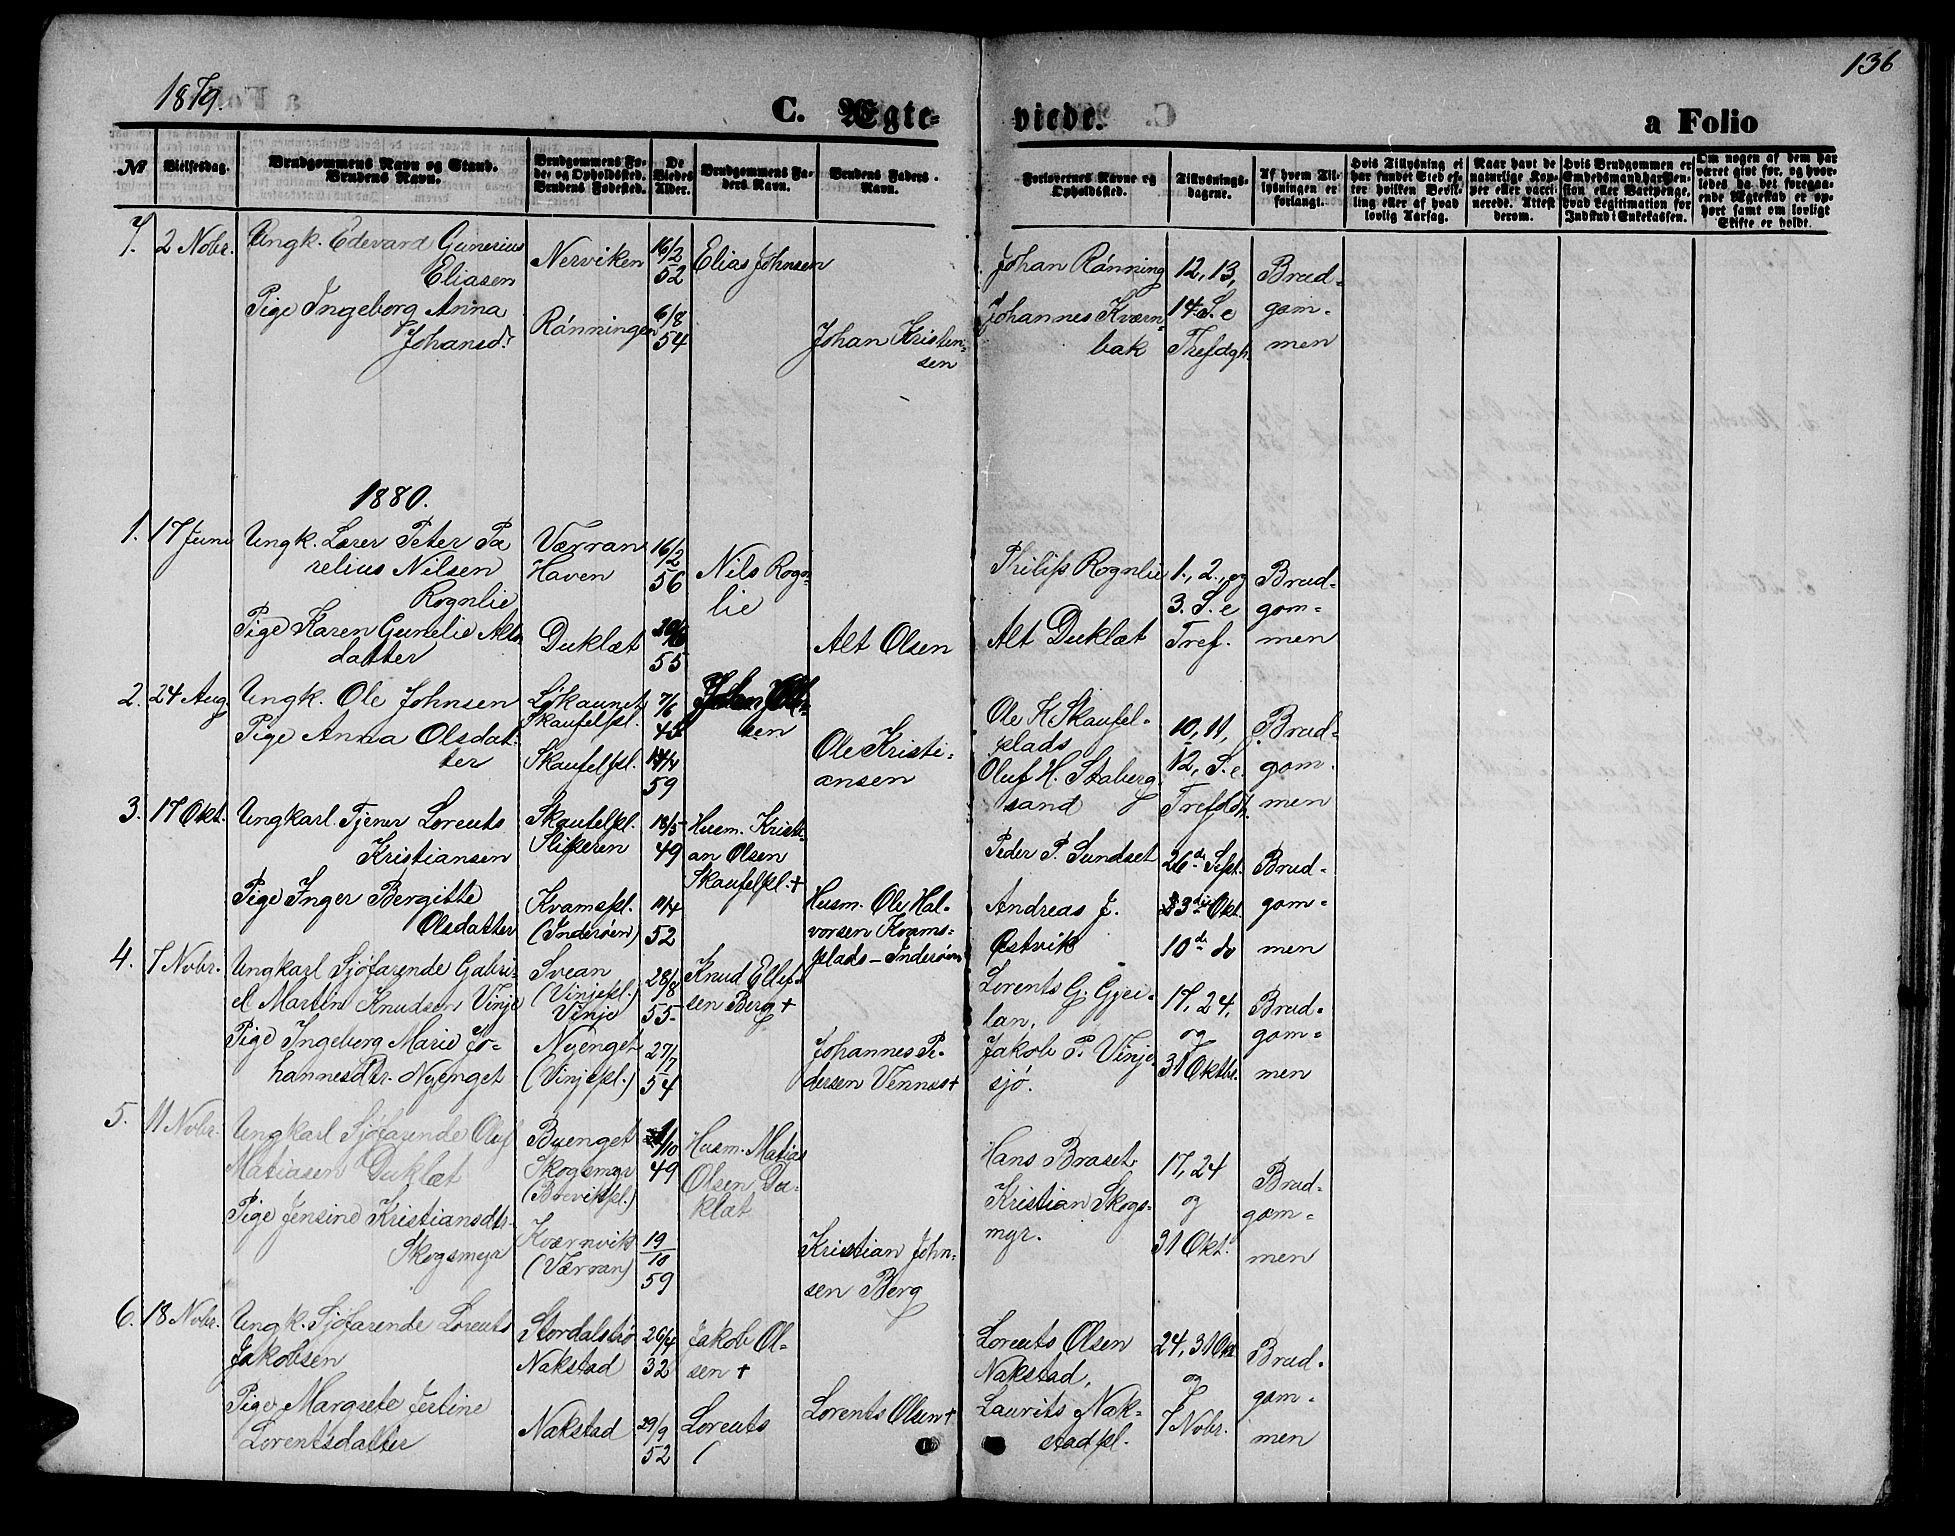 136
1879.
C. Ægte-
viede.
a Folio
No
Vielsesdag.
Brudgommens Navn og Stand.
Brudens Navn.
Brudgommens Fø-
de- og Opholdssted.
Brudens Fødested.
De
Viedes
Alder.
Brudgommens Fa-
ders Navn.
Brudens Faders
Navn.
Forlovernes Navne og
Opholdssted.
Tillysnings-
dagene.
Af hvem Til-
lysningen er
forlangt.
Hvis Tillysning ei
har fundet Sted ef-
ter hvilken Bevil-
ling eller af hvad
lovlig Aarsag.
Naar havt de
naturlige Kop-
per eller vacci-
nerede. Attest
derom.
Hvis Brudgommen er
Embedsmand har Pen-
sion eller Vartpenge,
hvad Legitimation for
Indskud i Enkekassen.
Om nogen af dem har
været givt før, og hvor-
ledes da det foregaa-
ende Ægteskab er op-
hørt samt om lovligt
Skifte er holdt.
7.
2 Nobr.
Ungk. Edevard Gunerius
Eliasen
Pige Ingeborg Anna
Johansd.
Nerviken
Rönningen
16/2
52
6/8
54
Elias Johnsen
Johan Kristen-
sen
Johan Rönning
Johannes Kværn-
bak
12, 13,
14 S. e
Trefdgh.
Brud-
gom-
men
1880.
1.
17 Juni
Ungk. Lærer Peter Pa
relius Nilsen
Rognlie
Pige Karen Gunelie Alts
datter
Værran
Haven
Duklæt
16/2
56
55
Nils Rogn-
lie
Alt Olsen
Philip Rognlie
Alt Duklæt
1., 2., og
3. S. e
Tref.
Brud-
gom-
men
2.
24 Aug.
Ungk. Ole Johnsen
Pige Anna Olsdat-
ter
Lökaunet
Skaufelpl.
Skaufelpl.
7/6
45
14/4
59
sen
Ole Kristi-
ansen
Ole K. Skaufel-
plads
Oluf H. Staberg
sand
10, 11,
12, S. e.
Trefdgh.
Brud-
gom-
men
3.
17 Okt.
Ungkarl Tjener Lorents
Kristiansen
Pige Inger Bergitte
Olsdatter
Skaufelpl.
Slipern
Kvamspl.
(Inderöen)
18/5
49
11/4
52
Husm. Kristi-
an Olsen
Skaufelpl. +
Husm. Ole Hal-
vorsen Kvams-
plads - Inderöen
Peder P. Sundset
Andreas J.
Östvik
26de Sept.
3die Okt.
10de do
Brud-
gom-
men
4.
7 Nobr.
Ungkarl Sjöfarende Gabri-
el Martin Knudsen Vinje
Pige Ingeborg Marie Jo-
hannesdtr. Nyenget
Svean
(Vinjepl.)
Vinje
Nyenget
(Vinjepl.)
28/8
55
27/7
54
Knud Ellef-
sen Berg +
Johannes Pe-
dersen Vennes +
Lorents G. Gjei-
lan,
Jakob P. Vinje-
sjö.
17, 24,
og
31 Oktbr.
Brud-
gom-
men
5.
11 Nobr.
Ungkarl Sjöfarende Oluf
Matiasen Duklæt
Pige Jensine Kristiansdtr.
Skogsmyr
Buenget
Skogsmyr
(Brevikpl.)
Kværnvik
(Værran)
1/10
49
19
10
59
Husm. Matias
Olsen Du-
klæt
Kristian John-
sen Berg
Hans Braset
Kristian Skogs-
myr.
17, 24
og
31 Okt.
Brud-
gom-
men
6.
18 Nobr.
Ungk. Sjöfarende Lorents
Jakobsen
Pige Margrete Jertine
Lorentsdatter
Stordalströ
Nakstad
Nakstad
26/4
32
29/9
52
Jakob Ol-
sen +
Lorents
Lorents Olsen +
Lorents Olsen
Nakstad,
Laurits Nak-
stadpl.
24, 31 Okt
og
7 Nobr.
Brud-
gom-
men